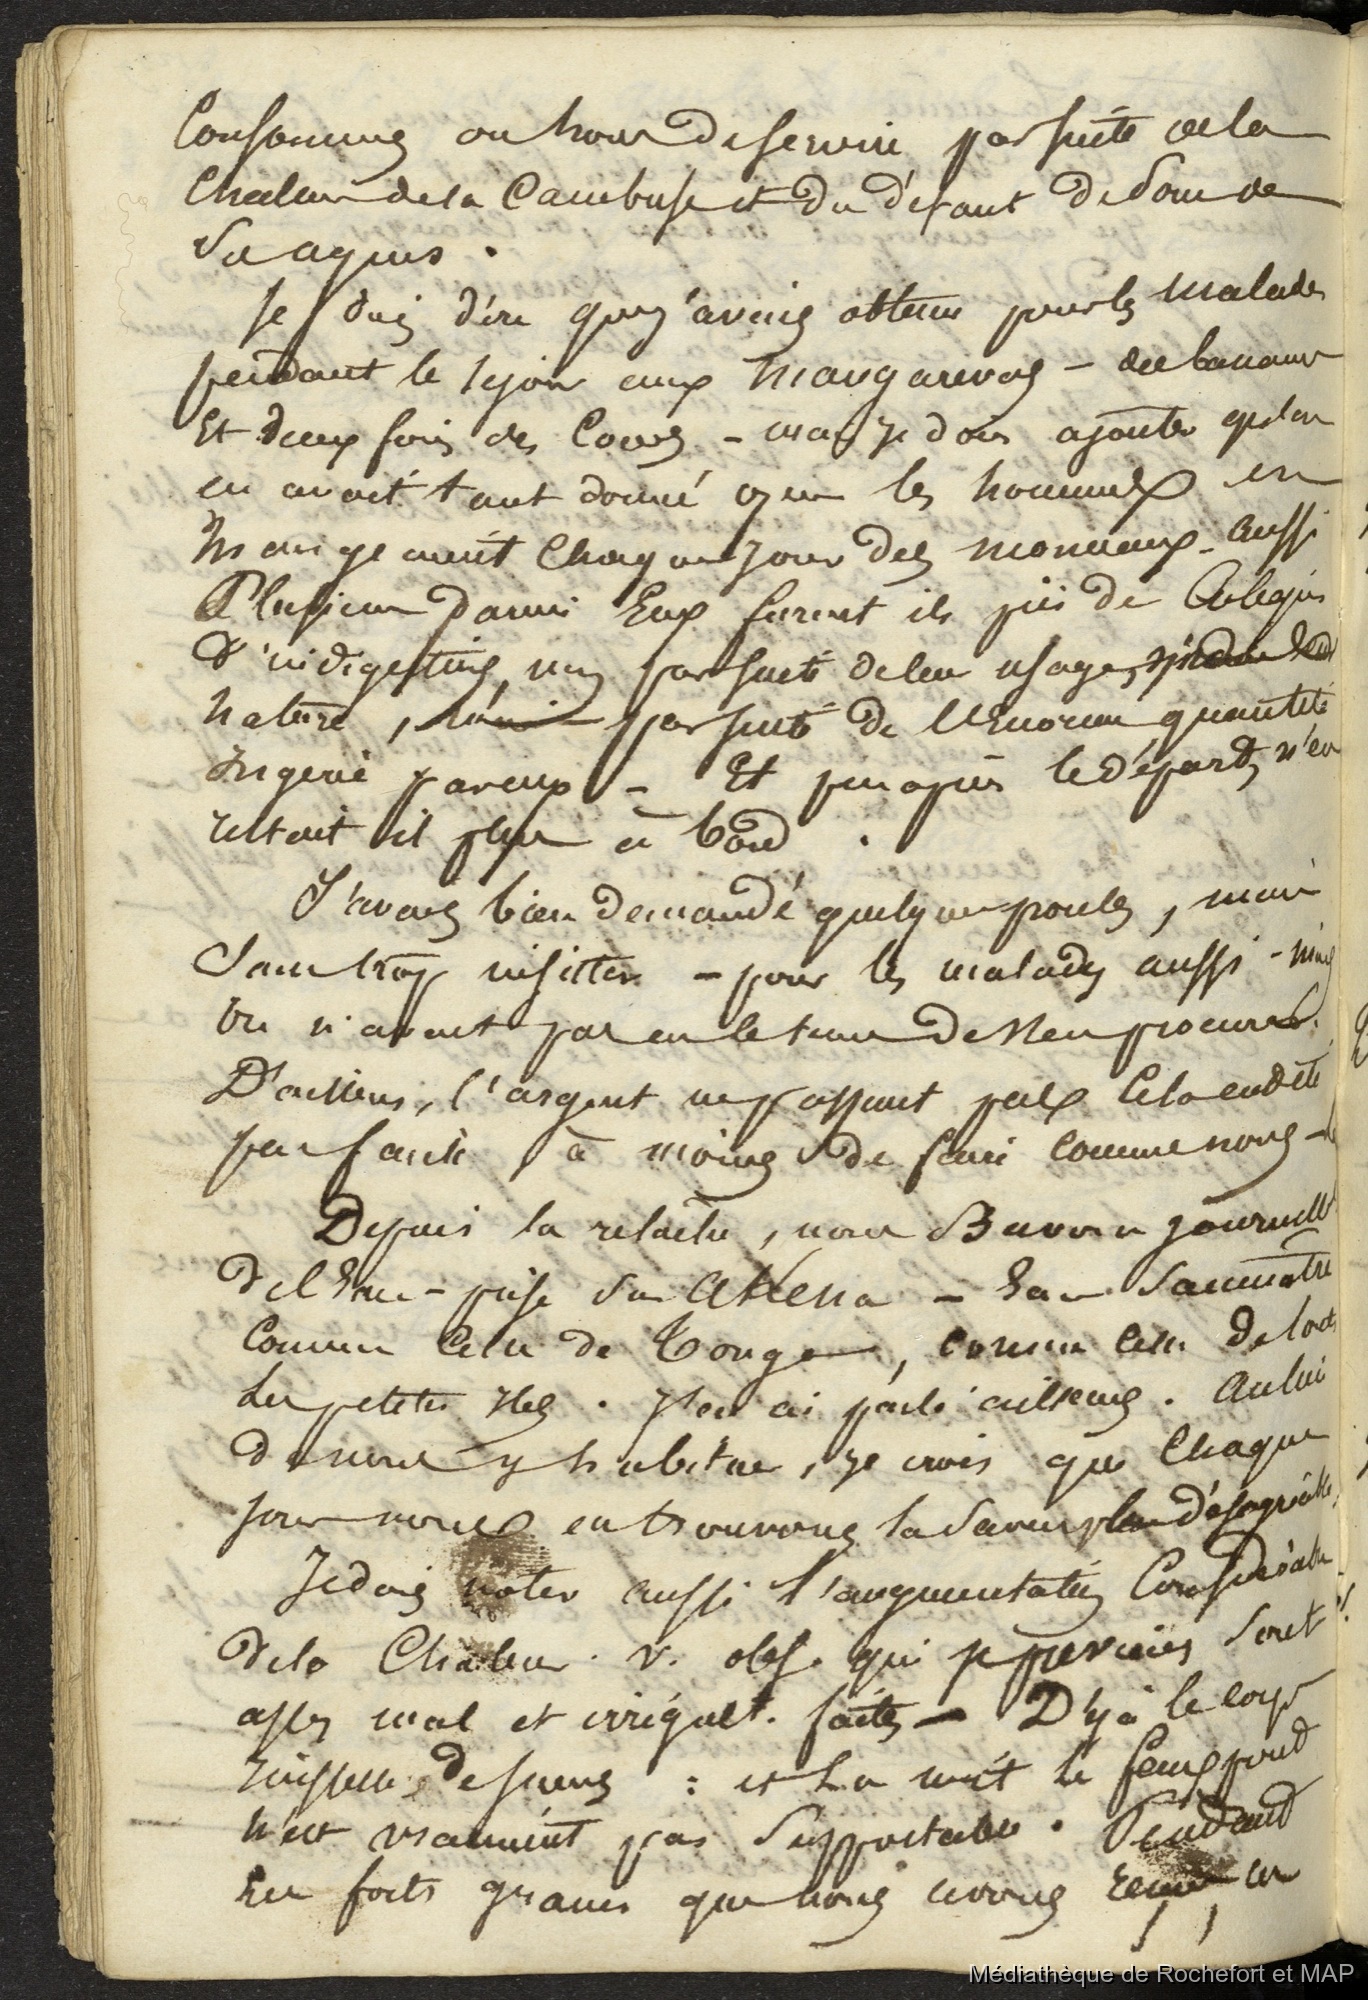 Consommés ou hors de service par suite de la
Chaleur de la Cambuse et du défaut de soin de
ses agens.
Je dois dire que j'avais obtenu pour les malades
pendant le séjour aux Mangarevas - des bananes
Et deux fois des Cocos - mais je dois ajouter qu'on
en avait tant donné que les hommes en
Mangeaient chaque jour des monceaux - Aussi
Plusieurs parmi Eux furent ils pris de Coliques
D'indigestions, non par suite de leur usage,
nature, par suite de l'Enorme quantité
Ingérée par eux - Et peu après le départ, n'en
restait il plus à bord.
J'avais bien demandé quelques poules, mais
Sans trop insister - pour les malades aussi - mais
on n'avait pas eu le temps de s'en procurer.
D'ailleurs, l'argent ne passant pas Cela eut été
peu facile, à moins de faire comme nous -
Depuis la relâche, nous Buvons journellt
de l'Eau - prise sur AKena - Eau Saumâtre
Comme Celle de Tonga, comme Celle de toutes
Les petites Iles. J'en ai parlé ailleurs. Au lieu
de nous y habituer, je crois que Chaque
jour nous en trouvons la Saveur plus désagréable.
Je dois noter aussi l'augmentation Considérable
de la Chaleur. v. obs. qui je préviens sont
assez mal et irrégult. faites - Déjà le corps
ruisselle de sueurs : et La nuit le faux pont
n'est vraiment pas Supportable. Pendant
les forts grains que nous avons